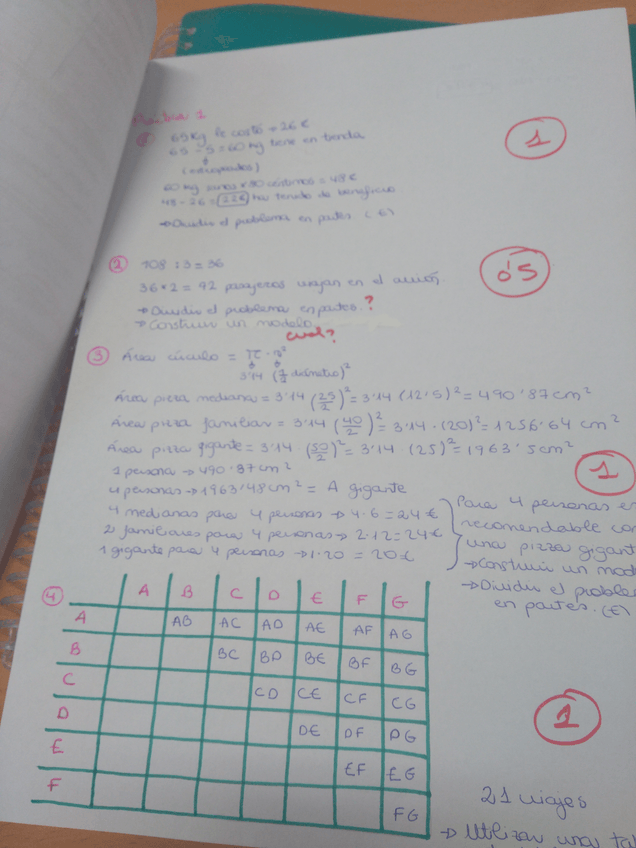 Práctica 1
① 65 Kg le costó → 26 €
65 - 5 = 60 kg tiene en tienda
↓
(estropeados)
60 kg × 80 céntimos = 48 €
48 - 26 = 22€ ha tenido de beneficio
→ Dividir el problema en partes (E)
1
② 108 : 3 = 36
36 × 2 = 72 pasajeros viajan en el avión.
→ Dividir el problema en partes. ?
→ Construir un modelo.
cual?
0'5
③ Área círculo = π · r²
3'14 (1/2 diámetro)²
Área pizza mediana = 3'14 (25/2)² = 3'14 (12'5)² = 490'87 cm²
Área pizza familiar = 3'14 (40/2)² = 3'14 · (20)² = 1256'64 cm²
Área pizza gigante = 3'14 · (50/2)² = 3'14 (25)² = 1963'5 cm²
1 persona → 490'87 cm²
4 personas → 1963'48 cm² = A gigante
4 medianas para 4 personas → 4·6 = 24 €
2 familiares para 4 personas → 2·12 = 24 €
1 gigante para 4 personas → 1·20 = 20 €
Para 4 personas es
recomendable com
una pizza gigant
→ Construir un mod
→ Dividir el proble
en partes. (E)
1
④ A B C D E F G
A AB AC AD AE AF AG
B BC BD BE BF BG
C CD CE CF CG
D DE DF DG
E EF EG
F FG
1
21 viajes
→ Utilizar una ta